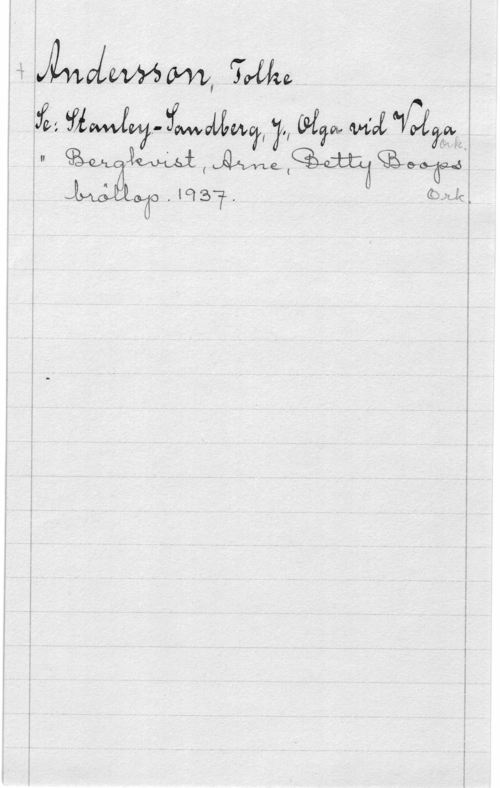 + Andersson, Folke
Se: Stanley-Sandberg, J., Olga vid Volga. Ork.
" Bergkvist, Arne, Betty Boops
bröllop. 1937. Ork.